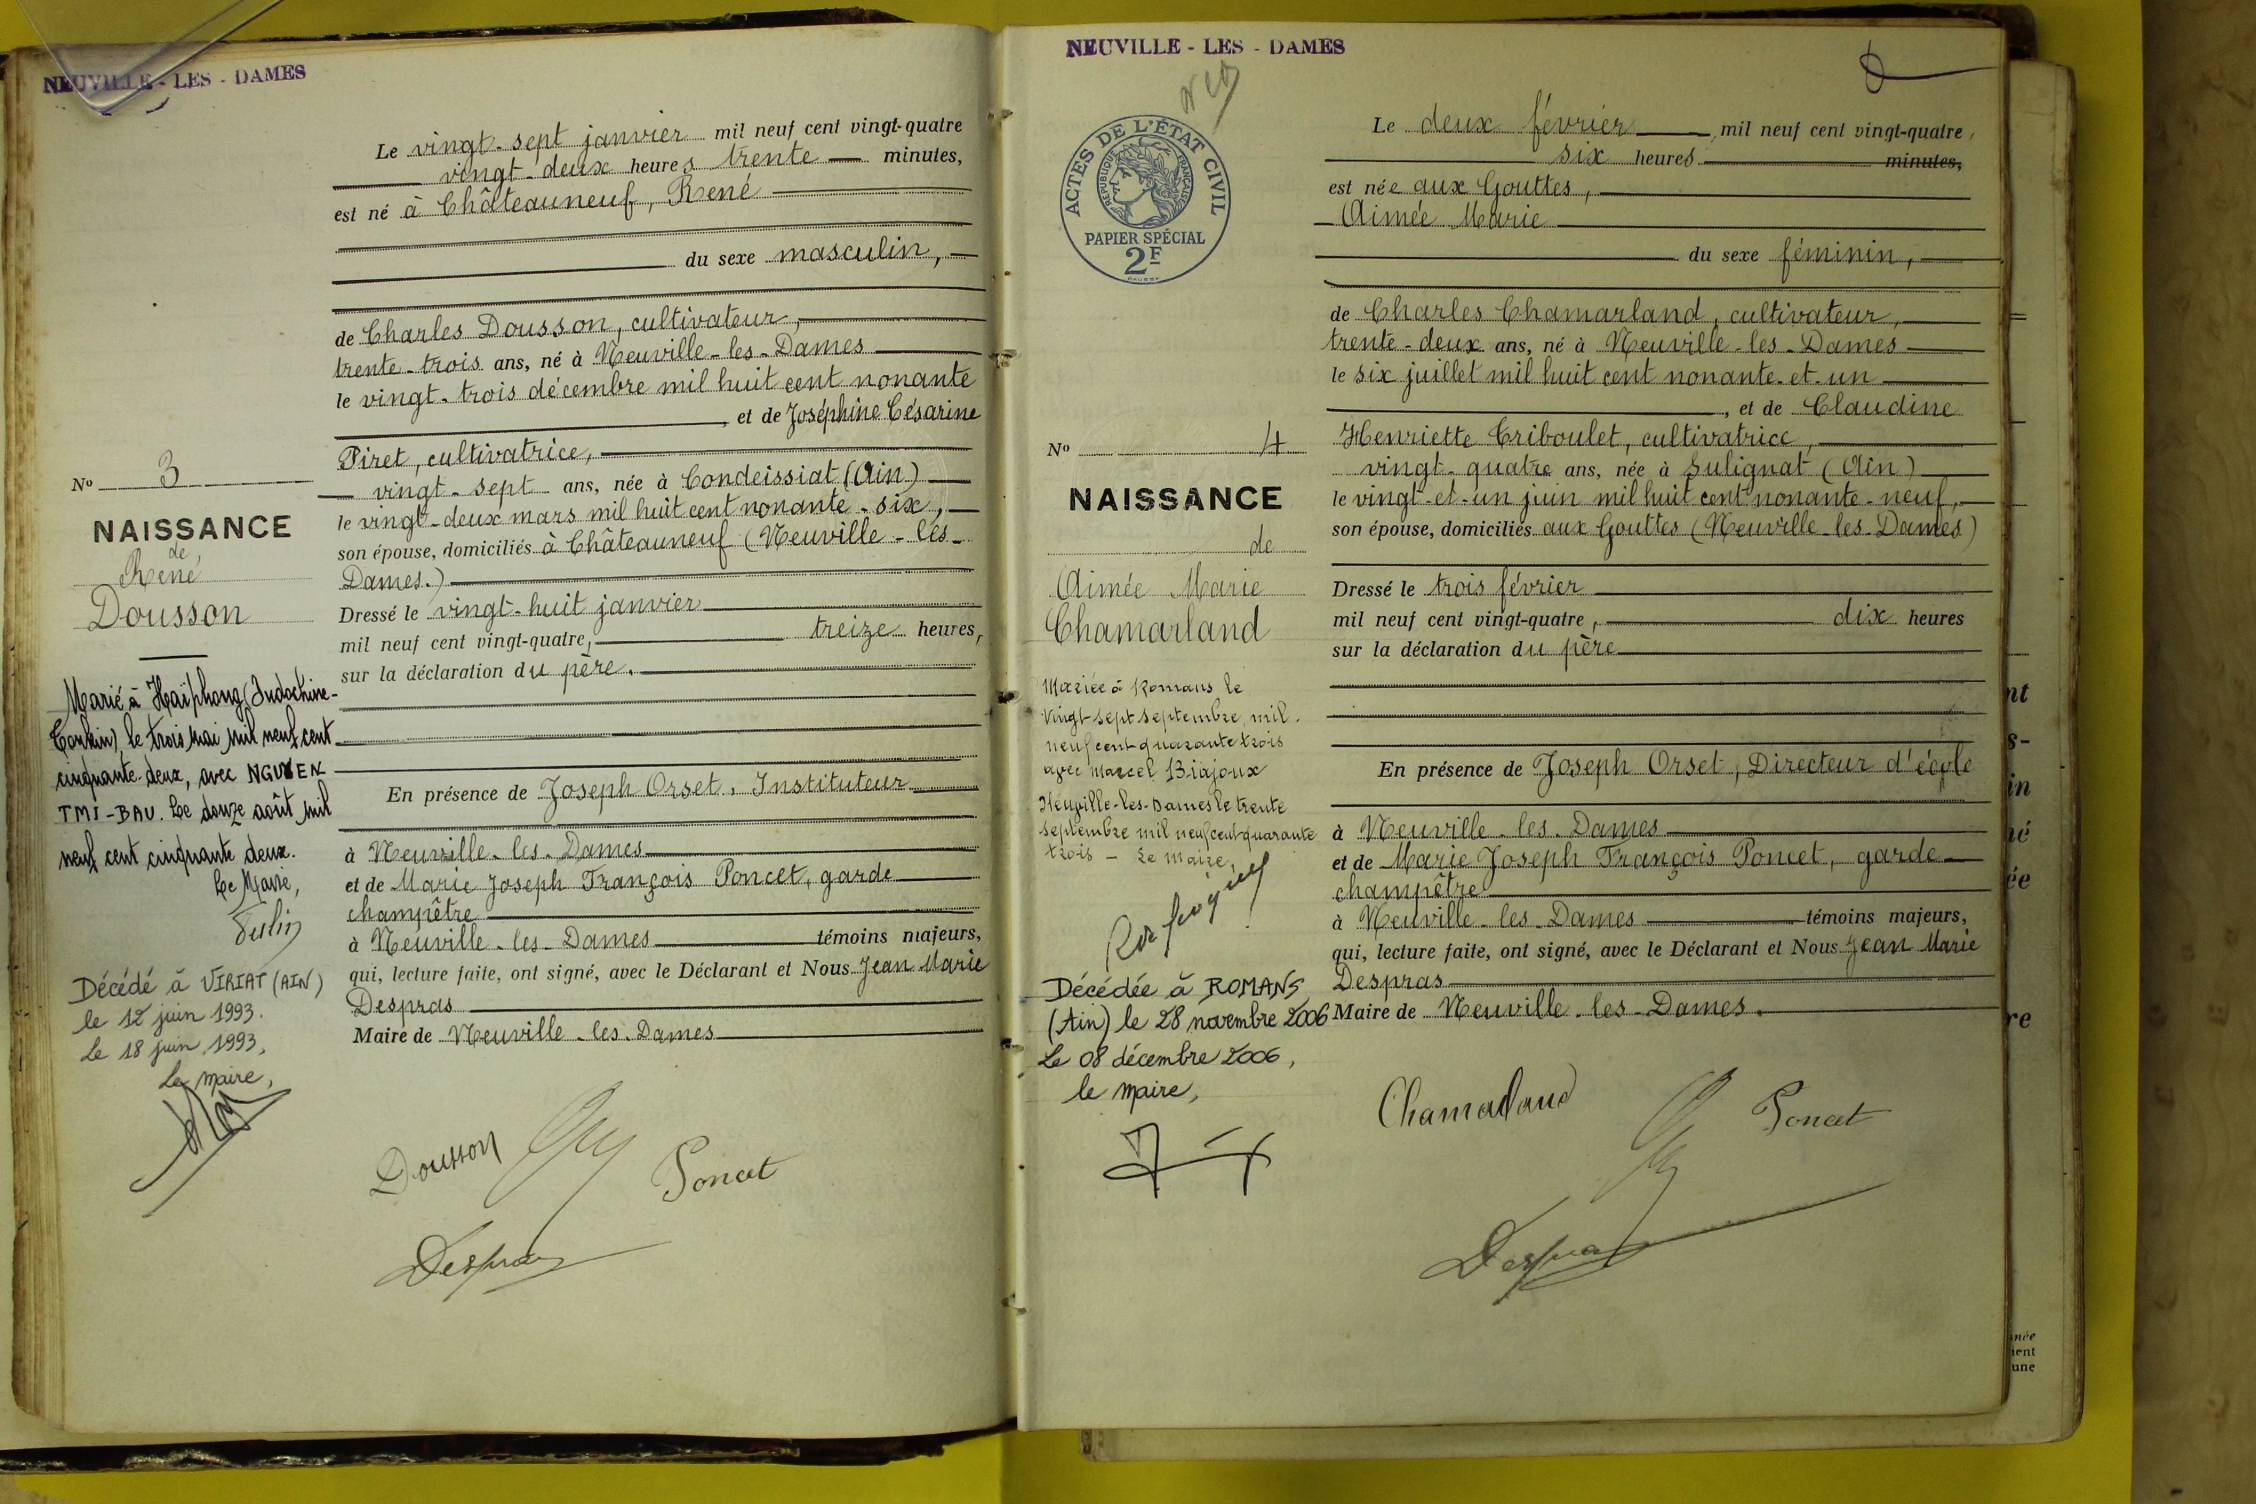 NEUVILLE - LES - DAMES
Le vingt-sept janvier mil neuf cent vingt-quatre
vingt-deux heures trente minutes,
est né à Châteauneuf, René
du sexe masculin,
de Charles Dousson, cultivateur,
trente-trois ans, né à Neuville-les-Dames
le vingt-trois décembre mil huit cent nonante
, et de Joséphine Césarine
Piret, cultivatrice,
vingt-sept ans, née à Condeissiat (Ain)
le vingt-deux mars mil huit cent nonante-six,
son épouse, domiciliés à Châteauneuf (Neuville-les-
Dames.)
Dressé le vingt-huit janvier
mil neuf cent vingt-quatre, treize heures,
sur la déclaration du père.
En présence de Joseph Orset, Instituteur
à Neuville-les-Dames
et de Marie Joseph François Poncet, garde
champêtre
à Neuville-les-Dames témoins majeurs,
qui, lecture faite, ont signé, avec le Déclarant et Nous Jean Marie
Despras
Maire de Neuville-les-Dames
Dousson
Poncet
Despras
No 3
NAISSANCE
de
René
Dousson
Marié à Haïphong (Indochine-
Tonkin) le trois mai mil neuf cent
cinquante-deux, avec NGUYEN
TMI-BAU. Le douze août mil
neuf cent cinquante deux.
Le Maire,
Décédé à VIRIAT (AIN)
le 12 juin 1993.
Le 18 juin 1993,
Le maire,
NEUVILLE - LES - DAMES
ACTES DE L'ÉTAT CIVIL
RÉPUBLIQUE FRANÇAISE
PAPIER SPÉCIAL
2F
Le deux février mil neuf cent vingt-quatre,
six heures minutes,
est née aux Gouttes,
Aimée Marie
du sexe féminin,
de Charles Chamarland, cultivateur,
trente-deux ans, né à Neuville-les-Dames
le six juillet mil huit cent nonante-et-un
, et de Claudine
Henriette Triboulet, cultivatrice,
vingt-quatre ans, née à Sulignat (Ain)
le vingt-et-un juin mil huit cent nonante-neuf,
son épouse, domiciliés aux Gouttes (Neuville-les-Dames)
Dressé le trois février
mil neuf cent vingt-quatre, dix heures
sur la déclaration du père
En présence de Joseph Orset, Directeur d'école
à Neuville-les-Dames
et de Marie Joseph François Poncet, garde
champêtre
à Neuville-les-Dames témoins majeurs,
qui, lecture faite, ont signé, avec le Déclarant et Nous Jean Marie
Despras
Maire de Neuville-les-Dames.
Chamarland
Poncet
Despras
No 4
NAISSANCE
de
Aimée Marie
Chamarland
Mariée à Romans le
vingt-sept septembre mil
neuf cent quarante trois
avec Marcel Biajoux
Neuville-les-Dames le trente
septembre mil neuf cent quarante
trois - Le Maire,
Décédée à ROMANS
(Ain) le 28 novembre 2006
Le 08 décembre 2006,
le maire,
nt
s-
in
né
ée
re
née
ient
une